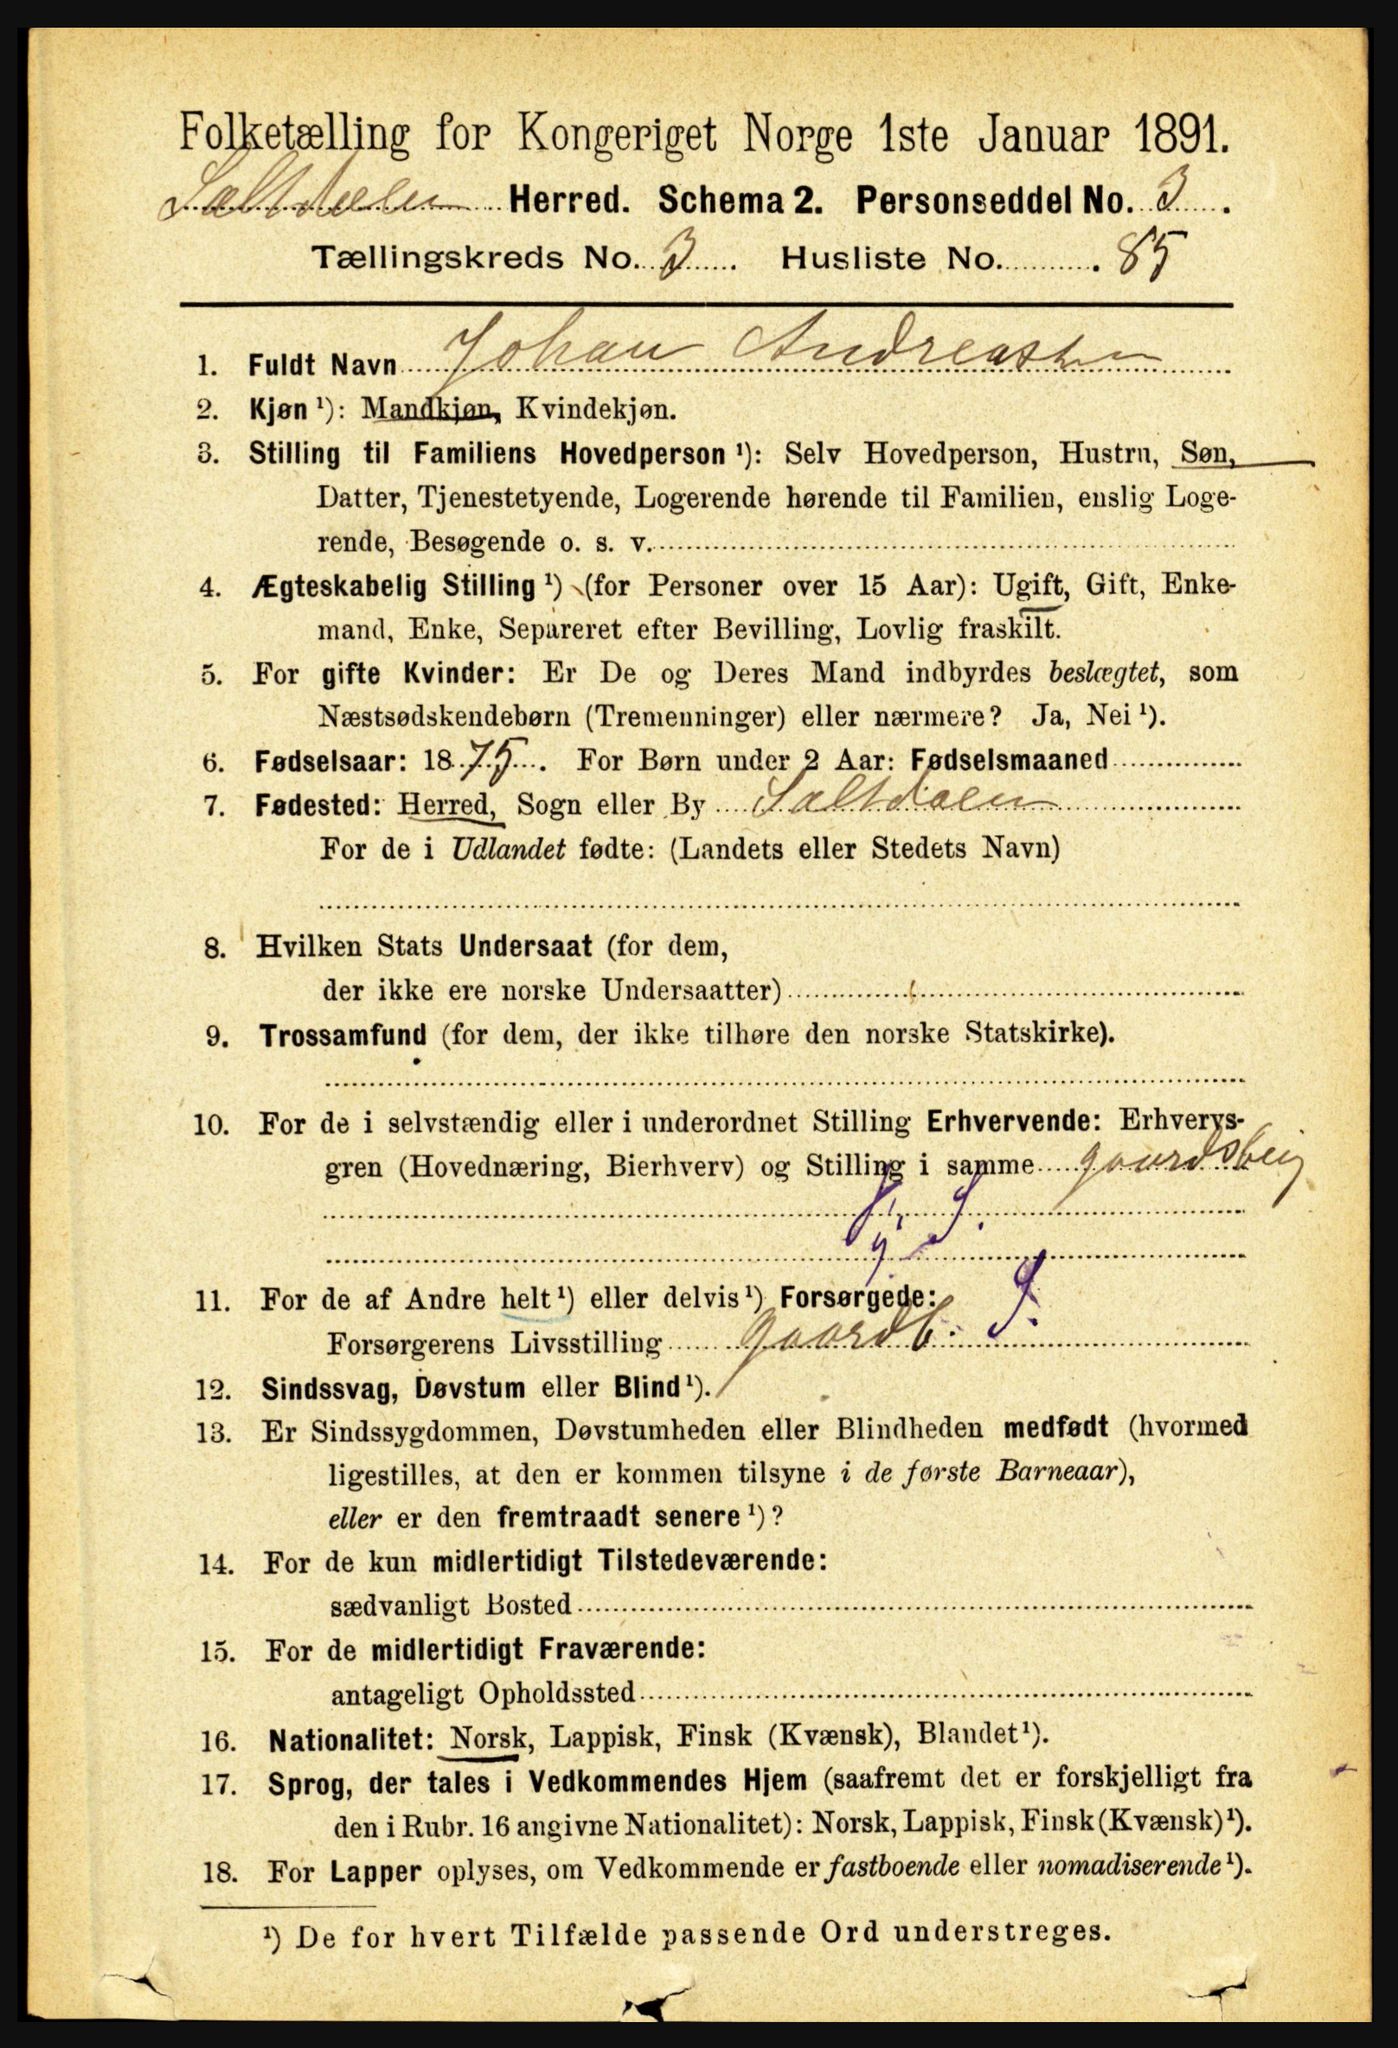 Folketælling for Kongeriget Norge 1ste Januar 1891.
Saltdalen Herred. Schema 2. Personseddel No. 3.
Tællingskreds No. 3. Husliste No. 85
1. Fuldt Navn Johan Andreassen
2. Kjøn ¹): Mandkjøn, Kvindekjøn.
3. Stilling til Familiens Hovedperson ¹): Selv Hovedperson, Hustru, Søn,
Datter, Tjenestetyende, Logerende hørende til Familien, enslig Loge-
rende, Besøgende o. s. v.
4. Ægteskabelig Stilling ¹) (for Personer over 15 Aar): Ugift, Gift, Enke-
mand, Enke, Separeret efter Bevilling, Lovlig fraskilt.
5. For gifte Kvinder: Er De og Deres Mand indbyrdes beslægtet, som
Næstsødskendebørn (Tremenninger) eller nærmere? Ja, Nei ¹).
6. Fødselsaar: 1875. For Børn under 2 Aar: Fødselsmaaned
7. Fødested: Herred, Sogn eller By Saltdalen
For de i Udlandet fødte: (Landets eller Stedets Navn)
8. Hvilken Stats Undersaat (for dem,
der ikke ere norske Undersaatter)
9. Trossamfund (for dem, der ikke tilhøre den norske Statskirke).
10. For de i selvstændig eller i underordnet Stilling Erhvervende: Erhvervs-
gren (Hovednæring, Bierhverv) og Stilling i samme
S.
11. For de af Andre helt ¹) eller delvis ¹) Forsørgede: S.
Forsørgerens Livsstilling gaardb.
12. Sindssvag, Døvstum eller Blind ¹).
13. Er Sindssygdommen, Døvstumheden eller Blindheden medfødt (hvormed
ligestilles, at den er kommen tilsyne i de første Barneaar),
eller er den fremtraadt senere ¹)?
14. For de kun midlertidigt Tilstedeværende:
sædvanligt Bosted
15. For de midlertidigt Fraværende:
antageligt Opholdssted
16. Nationalitet: Norsk, Lappisk, Finsk (Kvænsk), Blandet ¹).
17. Sprog, der tales i Vedkommendes Hjem (saafremt det er forskjelligt fra
den i Rubr. 16 angivne Nationalitet): Norsk, Lappisk, Finsk (Kvænsk) ¹).
18. For Lapper oplyses, om Vedkommende er fastboende eller nomadiserende ¹).
¹) De for hvert Tilfælde passende Ord understreges.